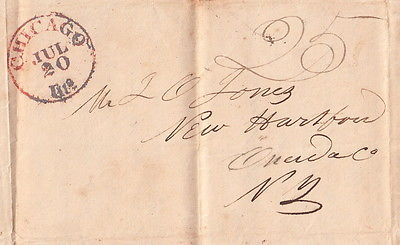 CHICAGO
JUL
20
Ill.
25
Mr J O Jones
New Hartford
Oneida Co
N.Y